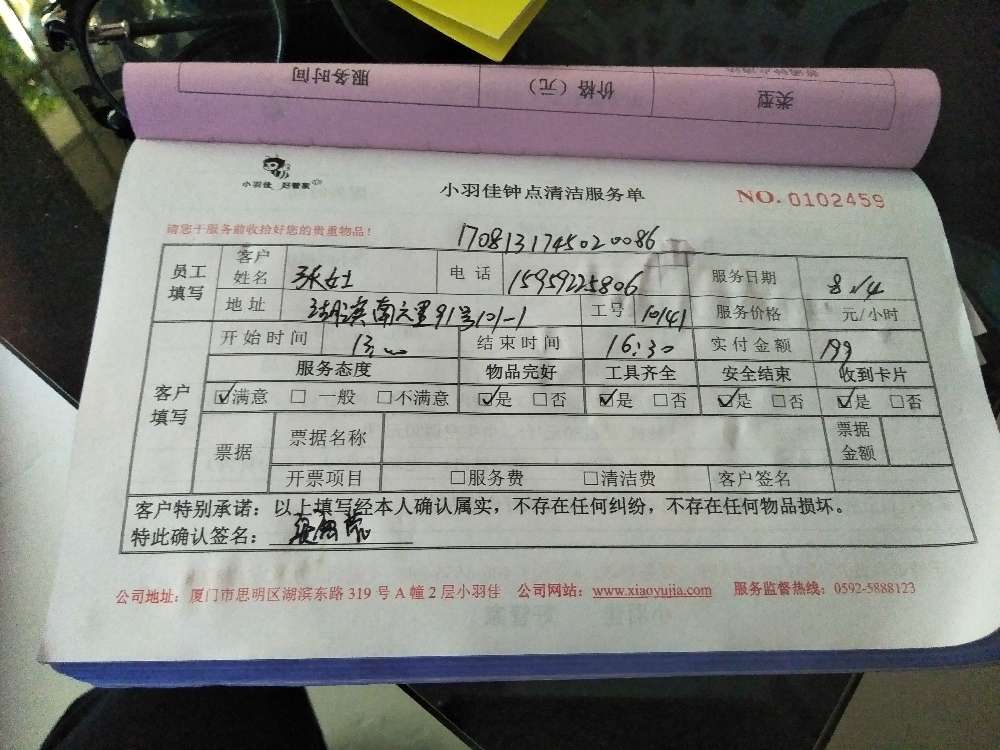 服务时间 价格（元） 类型
小羽佳 好管家
小羽佳钟点清洁服务单
NO. 0102459
请您于服务前收拾好您的贵重物品！
1708131745020086
员工填写 客户姓名 张女士 电话 15959225806 服务日期 8.14
地址 湖滨南六里91号101-1 工号 10141 服务价格 元/小时
客户填写 开始时间 13:00 结束时间 16:30 实付金额 199
服务态度 物品完好 工具齐全 安全结束 收到卡片
☑满意 □一般 □不满意 ☑是 □否 ☑是 □否 ☑是 □否 ☑是 □否
票据 票据名称 票据金额
开票项目 □服务费 □清洁费 客户签名
客户特别承诺：以上填写经本人确认属实，不存在任何纠纷，不存在任何物品损坏。
特此确认签名：
公司地址：厦门市思明区湖滨东路319号A幢2层小羽佳 公司网站：www.xiaoyujia.com 服务监督热线：0592-5888123